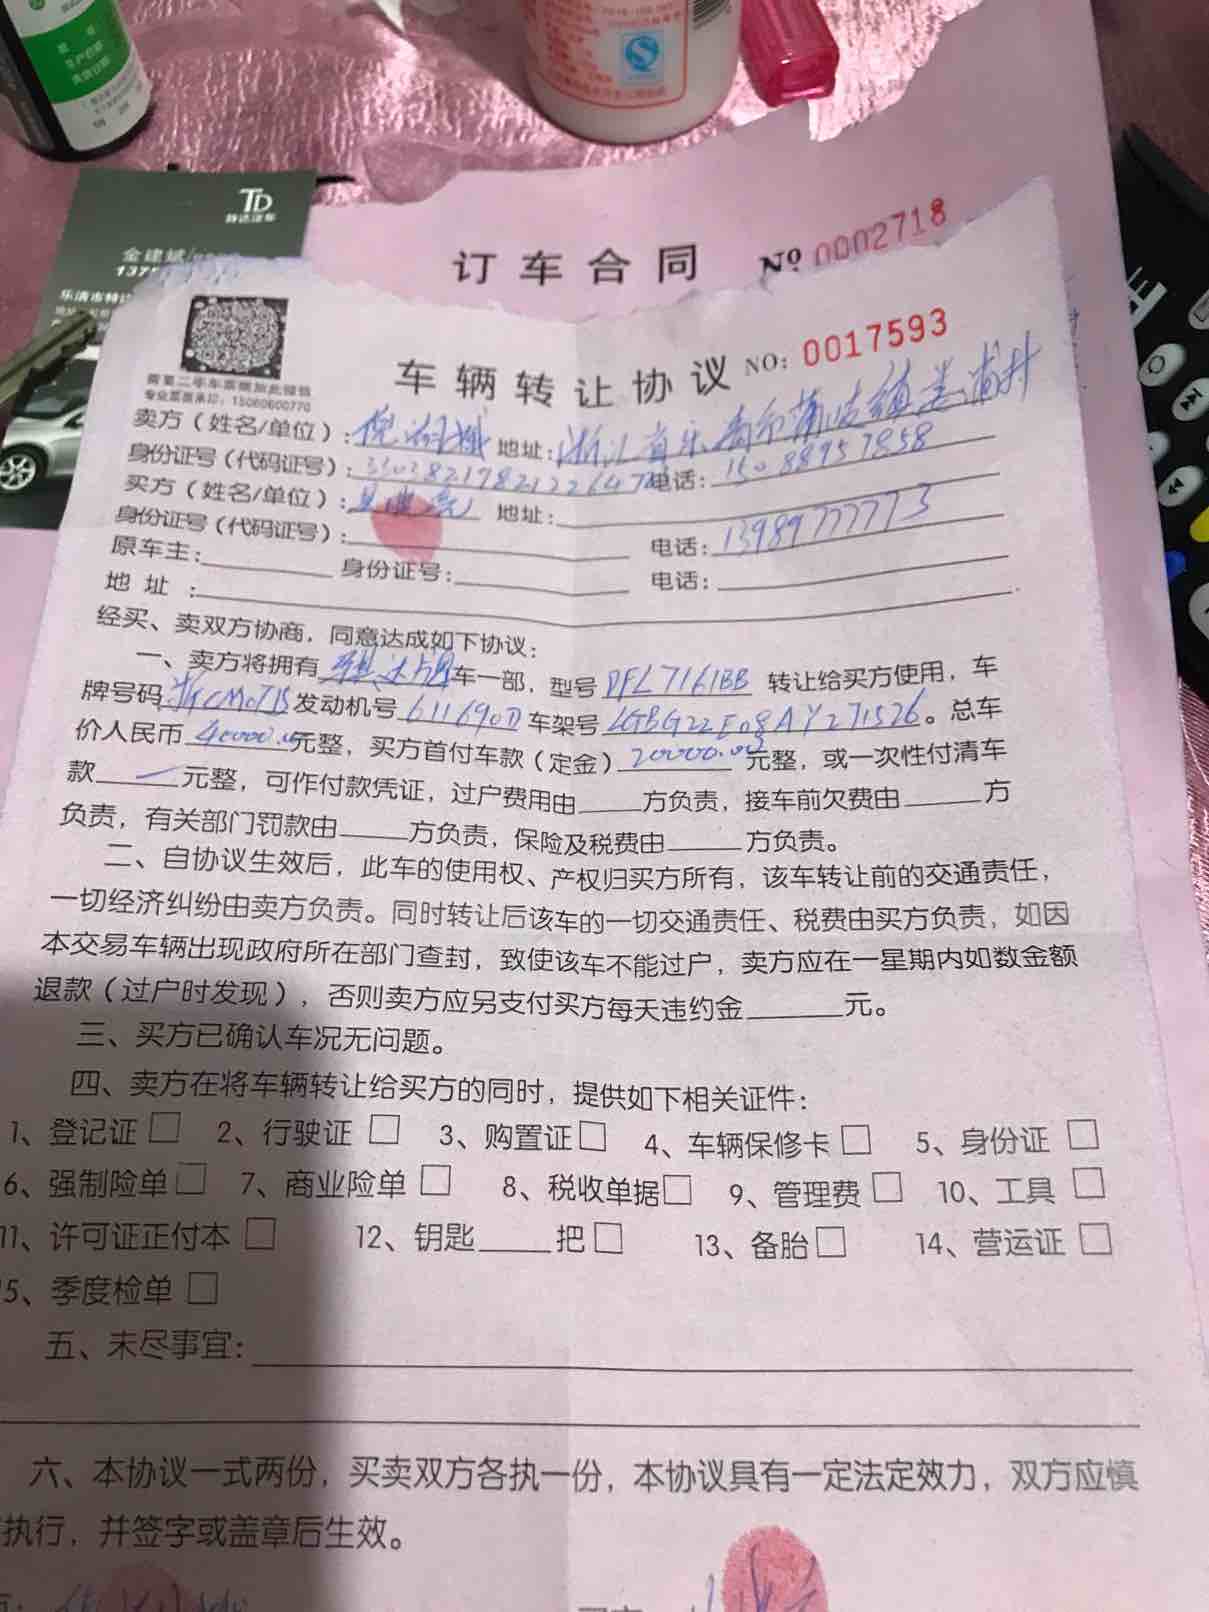 TD
特达汽车
金建斌
137
乐清市特达
订车合同 Nº 0002718
需要二手车票据加此微信
专业票据承印：15060600770
车辆转让协议 NO：0017593
卖方（姓名/单位）： 地址：浙江省乐清市蒲岐镇
身份证号（代码证号）： 电话：15088957858
买方（姓名/单位）： 地址：
身份证号（代码证号）： 电话：13989777773
原车主： 身份证号： 电话：
地 址 ：
经买、卖双方协商，同意达成如下协议：
一、卖方将拥有 车一部，型号 DFL7161BB 转让给买方使用，车
牌号码 发动机号 611690D 车架号 LGBG22E08AY271526。总车
价人民币 40000.00元整，买方首付车款（定金）20000.00元整，或一次性付清车
款 元整，可作付款凭证，过户费用由 方负责，接车前欠费由 方
负责，有关部门罚款由 方负责，保险及税费由 方负责。
二、自协议生效后，此车的使用权、产权归买方所有，该车转让前的交通责任，
一切经济纠纷由卖方负责。同时转让后该车的一切交通责任、税费由买方负责，如因
本交易车辆出现政府所在部门查封，致使该车不能过户，卖方应在一星期内如数金额
退款（过户时发现），否则卖方应另支付买方每天违约金 元。
三、买方已确认车况无问题。
四、卖方在将车辆转让给买方的同时，提供如下相关证件：
1、登记证 □ 2、行驶证 □ 3、购置证 □ 4、车辆保修卡 □ 5、身份证 □
6、强制险单 □ 7、商业险单 □ 8、税收单据 □ 9、管理费 □ 10、工具 □
11、许可证正付本 □ 12、钥匙 把 □ 13、备胎 □ 14、营运证 □
5、季度检单 □
五、未尽事宜：
六、本协议一式两份，买卖双方各执一份，本协议具有一定法定效力，双方应慎
执行，并签字或盖章后生效。